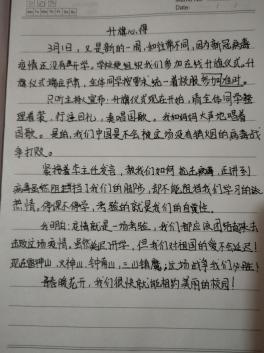 Date:
升旗心得
3月1日，又是新的一周，如往常不同，因为新冠病毒
疫情还没有开学。学校便组织我们参加在线升旗仪式。升
旗仪式
只听主持人宣布：升旗仪式现在开始，请全体同学整
理着装，行注目礼，奏唱国歌。我如同同大声地唱着
国歌。是的，我们中国是不会被这场没有硝烟的病毒战
争打败。
紧接着李主任发言，教我们如何抗击病毒，在讲到
病毒虽然阻挡了我们的脚步，却不能阻挡我们学习的
热情。停课不停学，考验的就是我们的自觉性。
我明白：疫情就是一场考验，我们都应该团结起来去
击败这场疫情，虽然延迟开学，但我们对祖国的爱不会延迟！
现在雷神山，火神山，钟南山，三山镇魔，这场战争我们必胜！
春暖花开，我们很快就能相约美丽的校园！